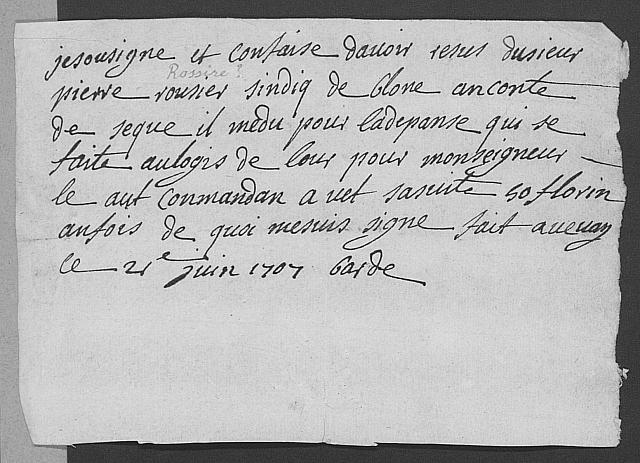 jesousigne et confaise davoir resus dusieur
Rossire?
pierre rousier sindiq de blone anconte
de seque il medu pour ladepanse qui se
faite aulogis de lour pour monseigneur
le aut commandan a vet sasuite 50 florin
anfois de quoi mesuis signe fait a vevay
le 21e juin 1707 Garde